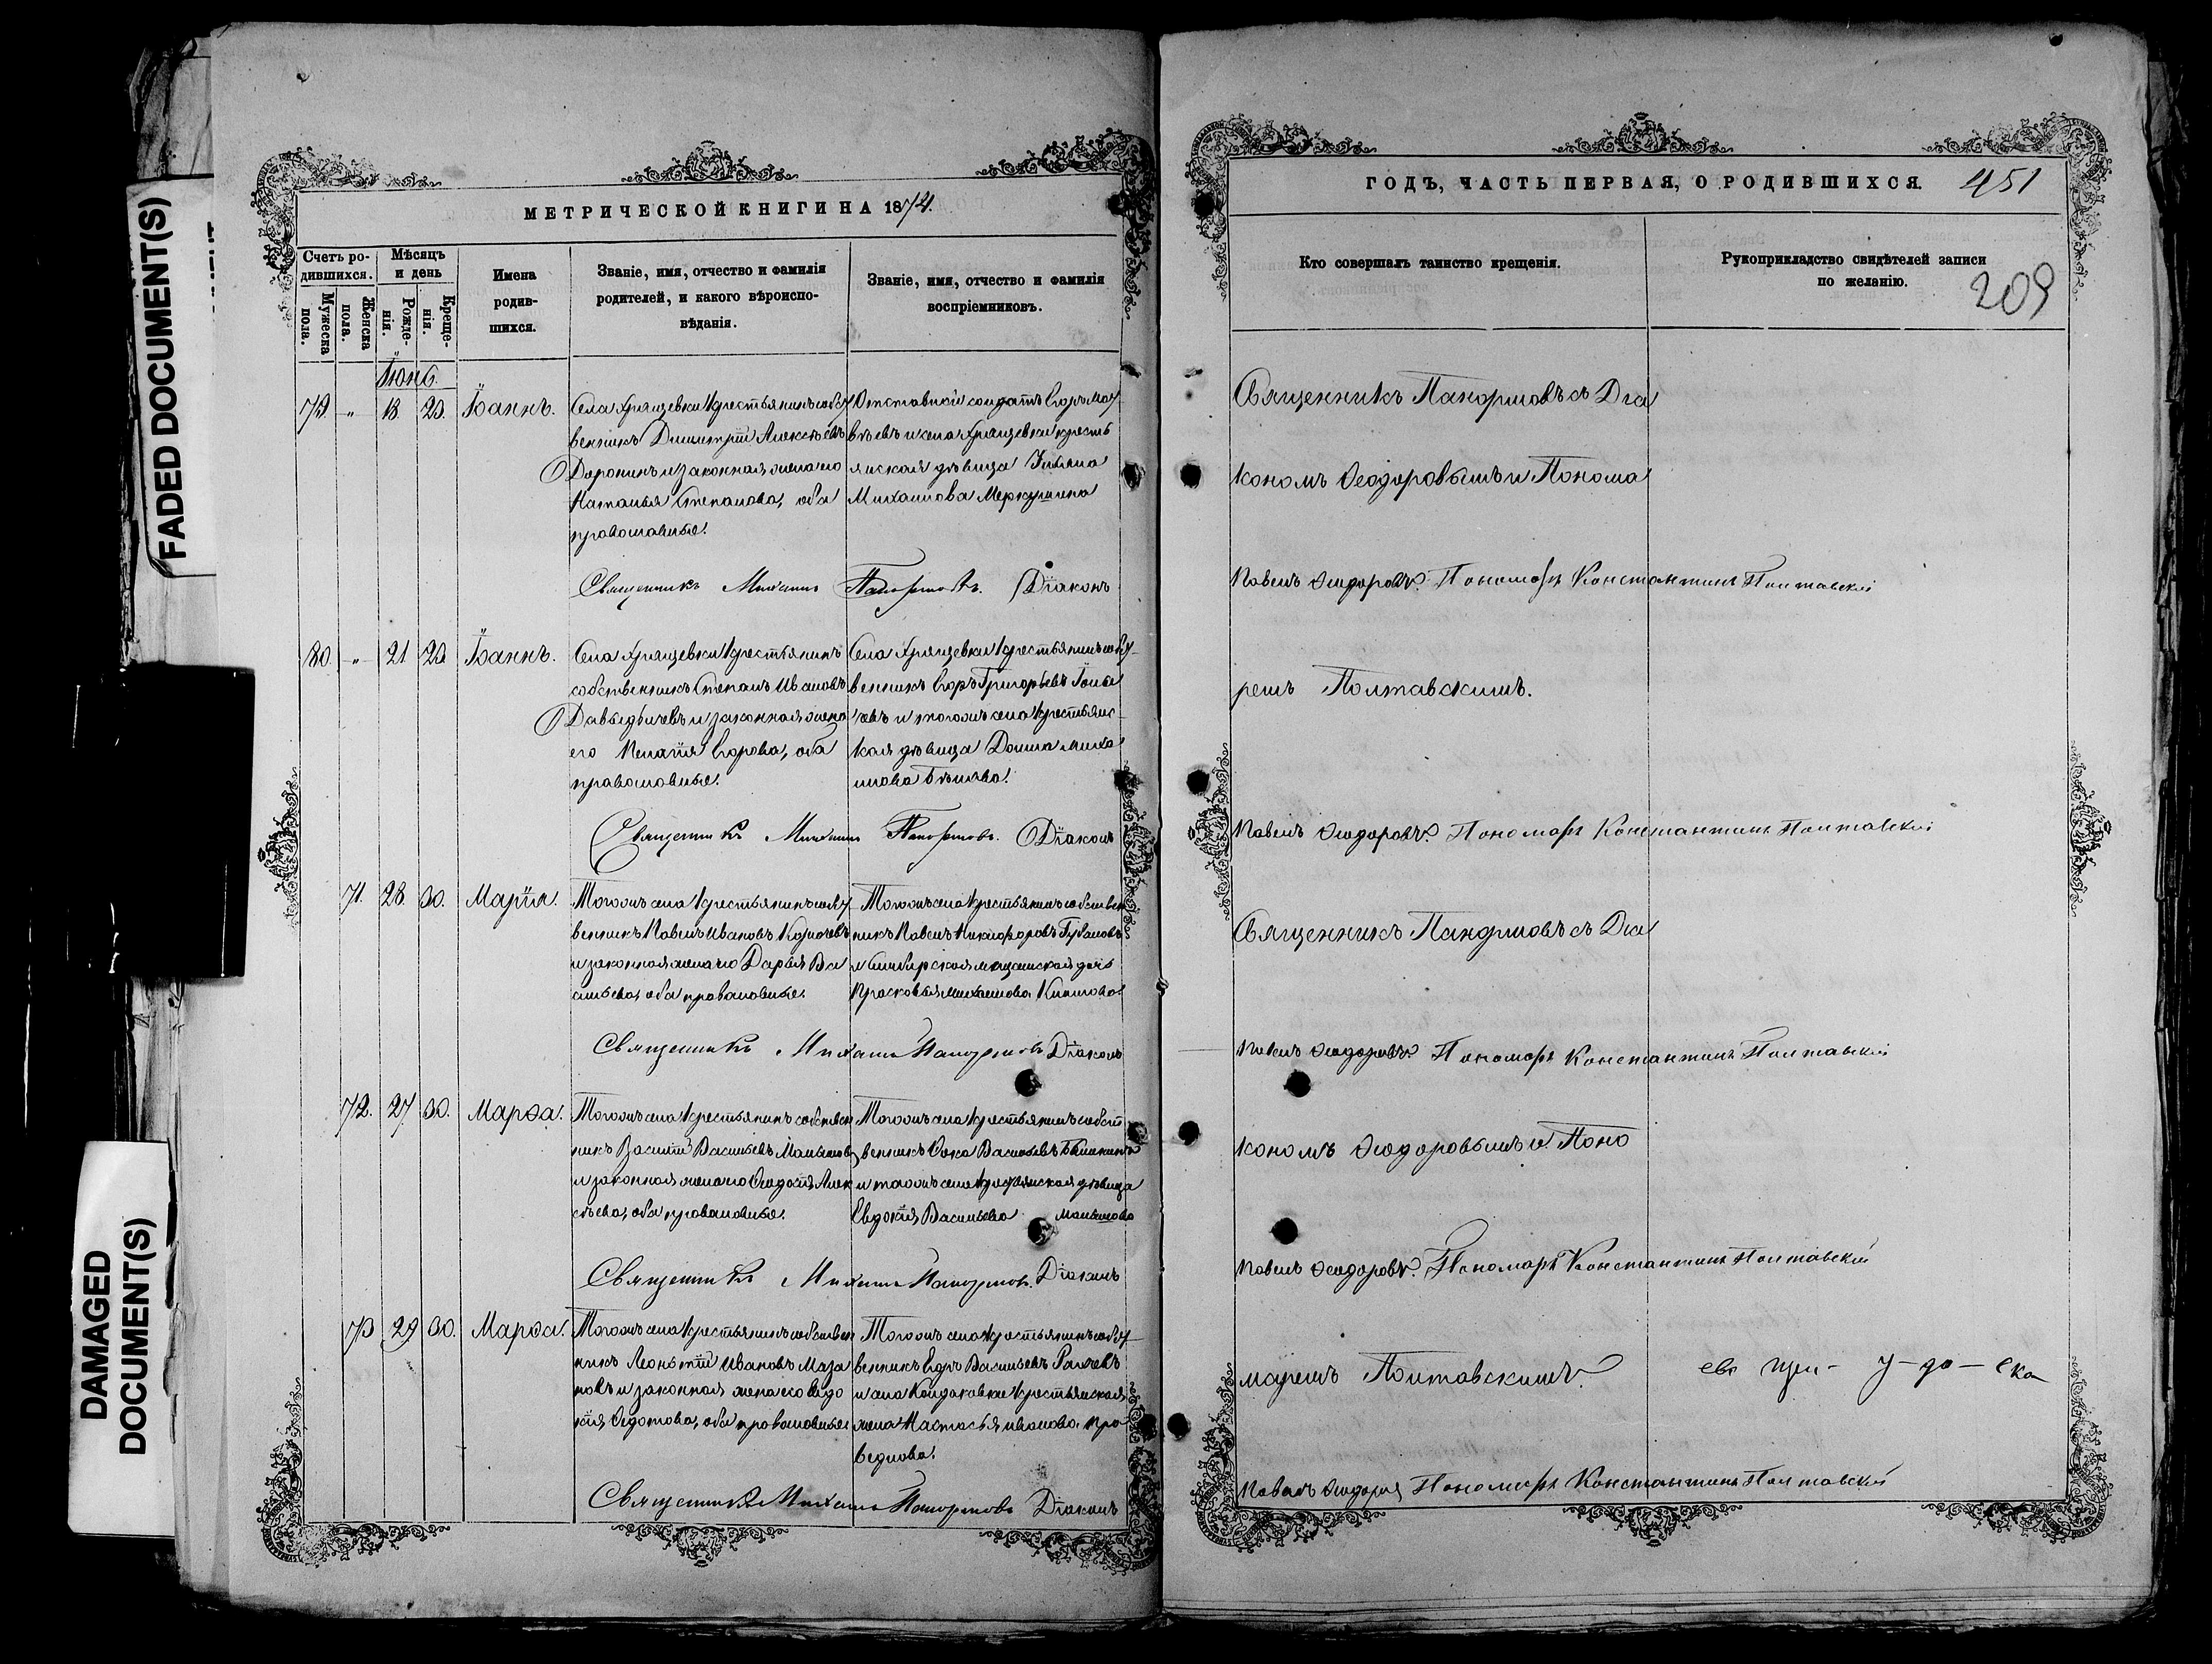 FADED DOCUMENT(S)
DAMAGED
DOCUMENT(S)
МЕТРИЧЕСКОЙ КНИГИ НА 1874.
Счетъ ро-
дившихся.
Мужеска
пола.
Женска
пола.
Мѣсяцъ
и день
Рожде-
нія.
Креще-
нія.
Имена
родив-
шихся.
Званіе, имя, отчество и фамилія
родителей, и какого вѣроиспо-
вѣданія.
Званіе, имя, отчество и фамилія
воспріемниковъ.
Іюнь.
79. " 18. 23. Іоаннъ.
Села Хрящевки крестьянинъ собст
венникъ Димитрій Алексѣевъ
Доронинъ и законная жена его
Наталья Степанова, оба
православные.
Отставной солдатъ Егоръ Мат
вѣевъ и села Хрящевки кресть
янская дѣвица Ульяна
Михаилова Меркушина
Священникъ Михаилъ Панормовъ. Діаконъ
80. " 21 23 Іоаннъ.
Села Хрящевки крестьянинъ
собственникъ Степанъ Ивановъ
Давыдычевъ и законная жена
его Пелагія Егорова, оба
православные.
Села Хрящевки крестьянинъ собст
венникъ Егоръ Григорьевъ
и тогожъ села крестьянс
кая дѣвица Домна Миха
илова
Священникъ Михаилъ Панормовъ. Діаконъ
71. 28. 30. Марія.
Тогожъ села крестьянинъ собст
венникъ Павелъ Ивановъ
и законная жена его Дарья Ва
сильева, оба православные.
Тогожъ села крестьянинъ собствен
никъ Павелъ Никифоровъ Губановъ
и Симбирская мѣщанская дочь
Прасковья Михаилова
Священникъ Михаилъ Панормовъ Діаконъ
72. 27. 30. Марѳа.
Тогожъ села крестьянинъ собствен
никъ Василій Васильевъ
и законная жена его Ѳеодосія Алек
сѣева, оба православные.
Тогожъ села крестьянинъ собст
венникъ Ѳока Васильевъ
и тогожъ села крестьянская дѣвица
Евдокія Васильева
Священникъ Михаилъ Панормовъ. Діаконъ
73 29 30. Марѳа.
Тогожъ села крестьянинъ собствен
никъ Леонтій Ивановъ Маза
новъ и законная жена его Евдо
кія Ѳедотова, оба православные
Тогожъ села крестьянинъ собст
венникъ Егоръ Васильевъ
и села Кондаковки крестьянская
жена Настасья Иванова
Священникъ Михаилъ Панормовъ Діаконъ
ГОДЪ, ЧАСТЬ ПЕРВАЯ, О РОДИВШИХСЯ. 451
Кто совершалъ таинство крещенія.
Рукоприкладство свидѣтелей записи
по желанію.
209
Священникъ Панормовъ съ Діа
кономъ Ѳеодоровымъ и Понома
Павелъ Ѳеодоровъ. Пономарь Константинъ Полтавскій
ремъ Полтавскимъ.
Павелъ Ѳеодоровъ. Пономарь Константинъ Полтавскій
Священникъ Панормовъ съ Діа
Павелъ Ѳеодоровъ. Пономарь Константинъ Полтавскій
кономъ Ѳеодоровымъ и Поно
Павелъ Ѳеодоровъ. Пономарь Константинъ Полтавскій
маремъ Полтавскимъ.
Павелъ Ѳеодоровъ Пономарь Константинъ Полтавскій